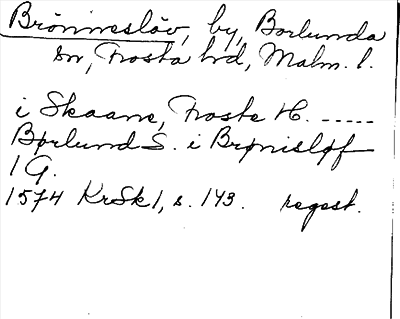 Brönneslöv, by, Borlunda
sn, Frosta hd, Malm. l.
i Skaane, Froste H. -----
Børlund S. i Brønisløf
1 G.
1574 KrSk 1, s. 143. regest.